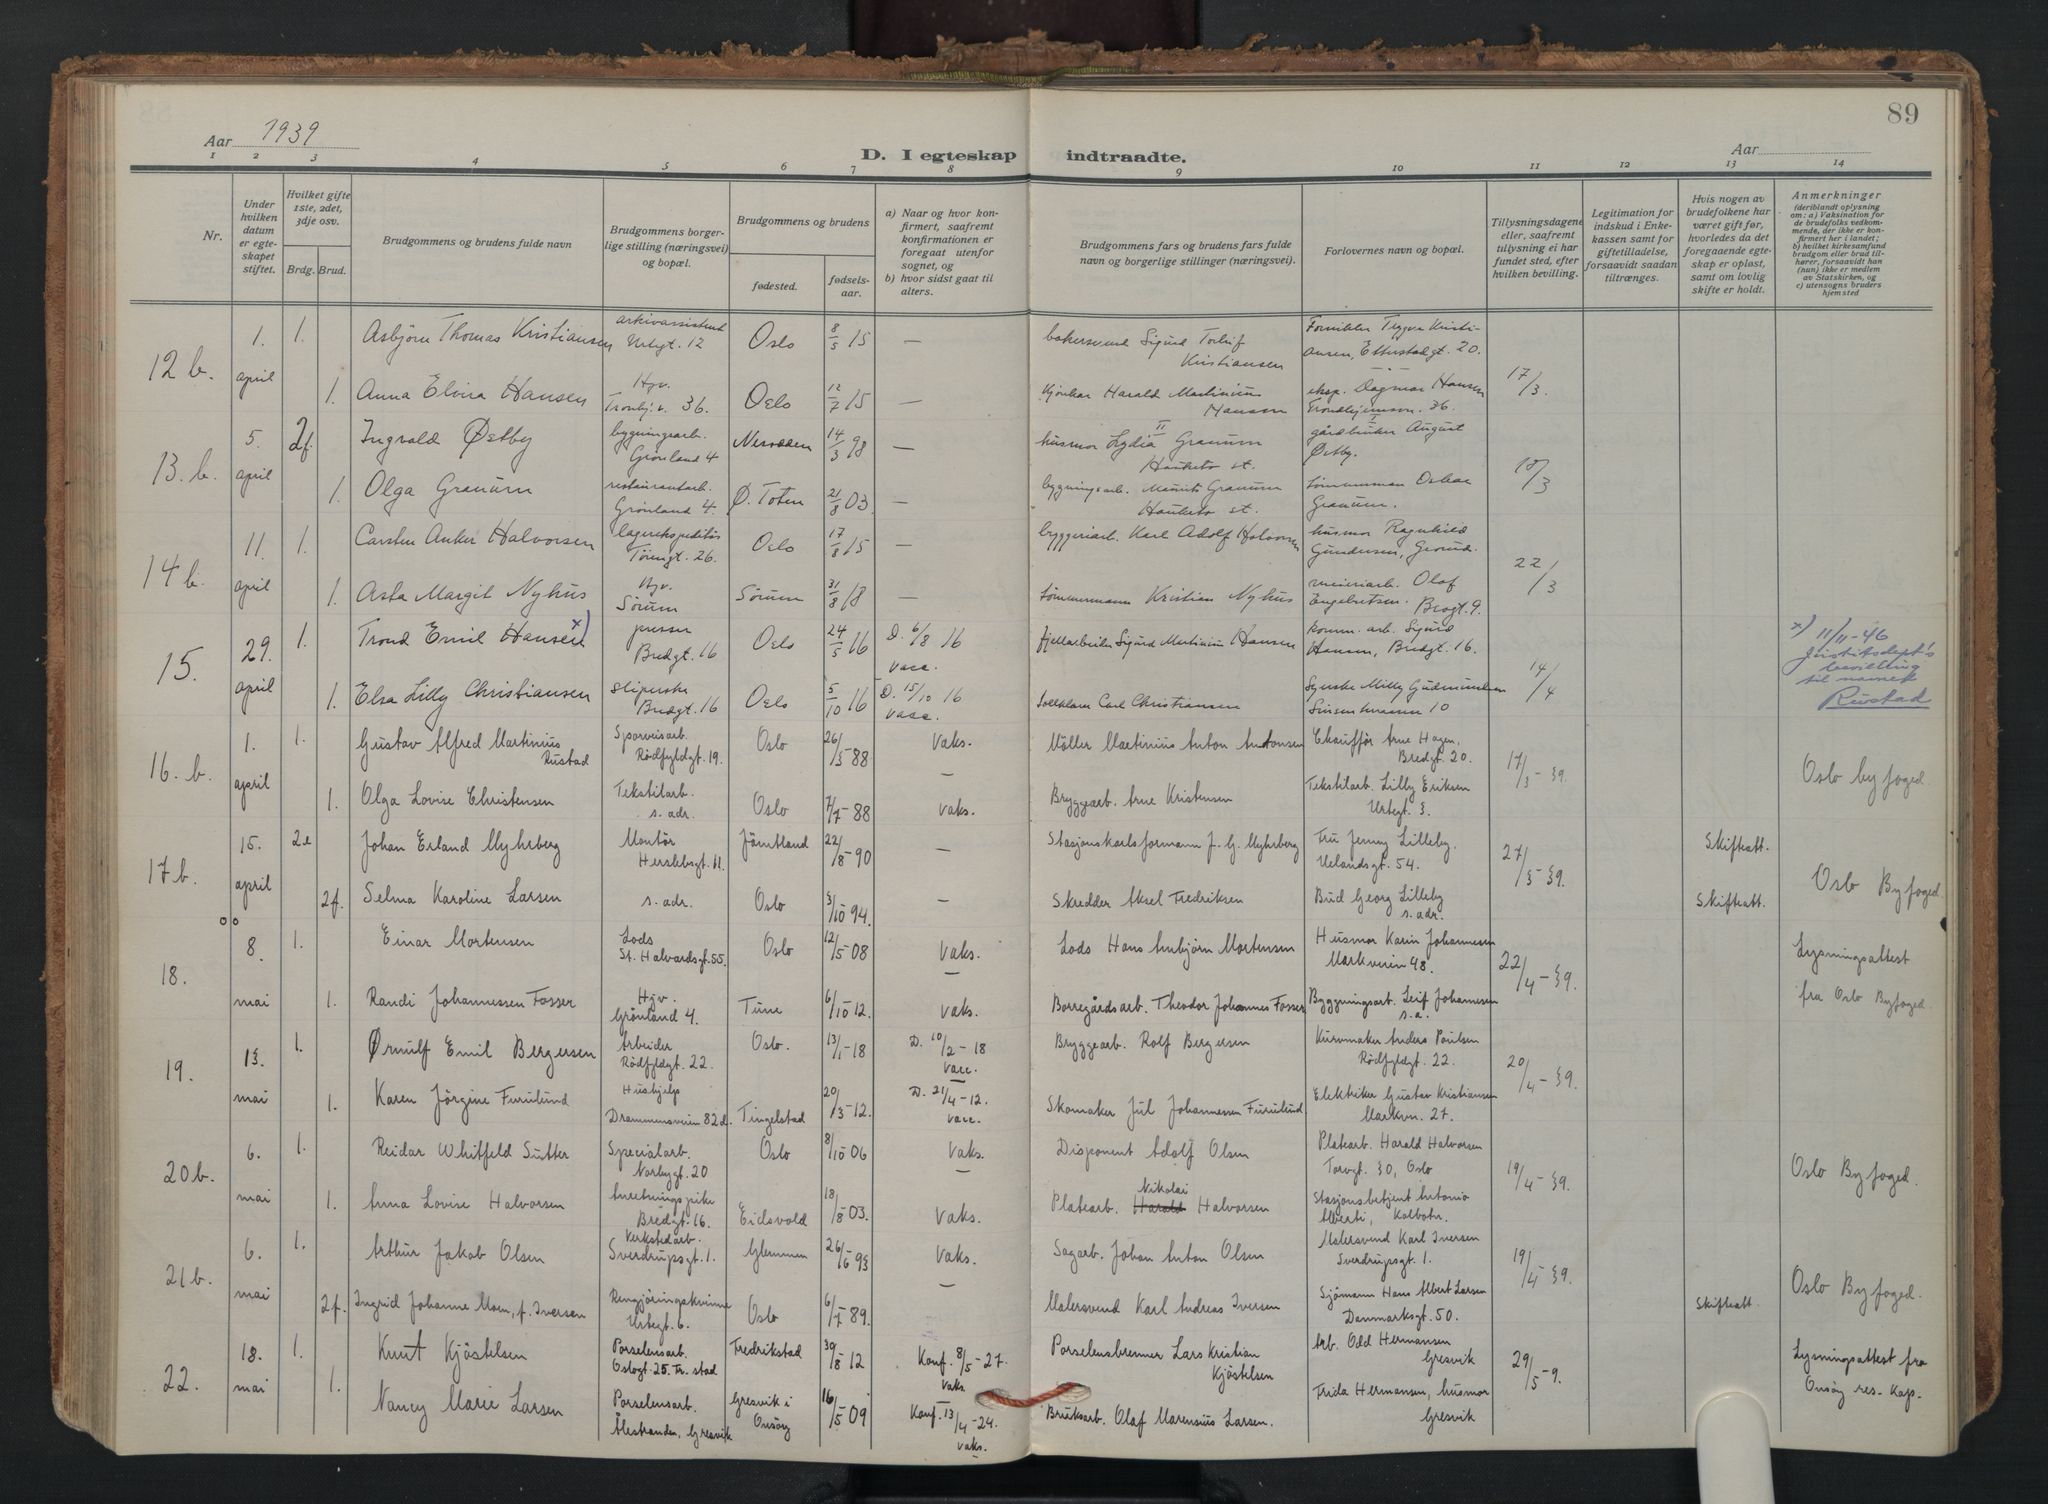 89
Aar 1939
D. I egteskap indtraadte.
Aar
1 2 3 4 5 6 7 8 9 10 11 12 13 14
Nr.
Under hvilken datum er egteskapet stiftet.
Hvilket gifte 1ste, 2det, 3dje osv.
Brdg. Brud.
Brudgommens og brudens fulde navn
Brudgommens borgerlige stilling (næringsvei) og bopæl.
Brudgommens og brudens
fødested.
fødselsaar.
a) Naar og hvor konfirmert, saafremt konfirmationen er foregaat utenfor sognet, og
b) hvor sidst gaat til alters.
Brudgommens fars og brudens fars fulde navn og borgerlige stillinger (næringsvei).
Forlovernes navn og bopæl.
Tillysningsdagene eller, saafremt tillysning ei har fundet sted, efter hvilken bevilling.
Legitimation for indskud i Enkekassen samt for giftetilladelse, forsaavidt saadan tiltrænges.
Hvis nogen av brudefolkene har været gift før, hvorledes da det foregaaende egteskap er opløst, samt om lovlig skifte er holdt.
Anmerkninger
(deriblandt oplysning om: a) Vaksination for de brudefolks vedkommende, der ikke er konfirmert her i landet; b) hvilket kirkesamfund brudgom eller brud tilhører, forsaavidt han (hun) ikke er medlem av Statskirken, og c) utensogns bruders hjemsted
12 b. 1. april 1. Asbjörn Thomas Kristiansen arkivassistent Urtegt. 12 Oslo 8/5 15 — bakersvend Sigurd Torleif Kristiansen Formiddler Trygve Kristiansen, Etterstadgt. 20. 17/3
1. Anna Elvira Hansen Hjv. Trondhj.v. 36. Oslo 12/7 15 — Harald Martinius Hansen eksp. Dagmar Hansen Trondhjemsvn. 36.
13. b. 5. april 2f. Ingvald Østby bygningsarb. Grönland 4 Nesodden 14/3 98 — husmor Lydia Granum Hauketo st. gårdbruker August Østby. 18/3
1. Olga Granum restaurantarb. Grönland 4. Ø. Toten 21/8 03. — bygningsarb. Mauritz Granum Hauketo st. tömmermann Oskar Granum.
14 b. 11. april 1. Carsten Anker Halvorsen lagerekspeditör Töiengt. 26. Oslo 17/8 15 — bryggeriarb. Karl Adolf Halvorsen husmor Ragnhild Gundersen, Grorud. 22/3
1. Asta Margit Nyhus Hjv. Sörum Sörum 31/8 18 — tömmermann Kristian Nyhus meieriarb. Olaf Engebretsen. Brogt. 9.
15. 29. april 1. Trond Emil Hansen x) presser Bredgt. 16 Oslo 24/5 16 D. 6/8 16 vacc. fjellarbeider Sigurd Martinius Hansen komm. arb. Sigurd Hansen, Bredgt. 16. 14/4 x) 11/11-46 Justitsdept's bevilling til navnet Rustad
1. Elsa Lilly Christiansen sliperske Bredgt. 16 Oslo 5/10 16 D. 15/10 16 vacc. tollklarer Carl Christiansen Syerske Milly Gudmundsen Sinsenterrassen 10
16. b. 1. april 1. Gustav Alfred Martinius Rustad Sporveisarb. Rödfyldgt. 19. Oslo 26/3-88 vaks. — Möller Martinius Anton Antonsen Chauffør Arne Hagen, Bredgt. 20. 17/3-39. Oslo byfoged
1. Olga Lovise Christensen Tekstilarb. s. adr. Oslo 7/7-88 vaks. Bryggearb. Arne Kristensen Tekstilarb. Lilly Eriksen Urtegt. 3.
17 b. 15. april 2e Johan Erland Myhrberg Montör Herslebsgt. 11. Jämtland 22/8-90 — Stasjonskarlsformann J. G. Myhrberg Fru Jenny Lilleby. Uelandsgt. 54. 27/3-39. Skifteatt. Oslo Byfoged
2f. Selma Karoline Larsen s. adr. Oslo 3/10 94. — Skredder Aksel Fredriksen Bud Georg Lilleby s. adr. Skifteatt.
18. 8. mai 1. Einar Mortensen Lods St. Halvardsgt. 55. Oslo 12/5 08 vaks. — Lods Hans Arnbjörn Mortensen Husmor Karin Johannessen Markveien 48. 22/4-39. Lysningsattest fra Oslo Byfoged.
1. Randi Johannessen Fosser Hjv. Grönland 4. Tune 6/10 12. vaks. Borregårdsarb. Theodor Johannes Fosser Byggningsarb. Leif Johannesen s.a.
19. 13. mai 1. Ørnulf Emil Bergersen Arbeider Rödfyldgt. 22. Oslo. 13/1-18 D. 10/2-18 vacc. Bryggearb. Rolf Bergersen Kurvmaker Anders Paulsen Rödfyldgt. 22. 20/4-39.
1. Karen Jörgine Furulund Hushjelp Drammensveien 82d. Tingelstad 20/3-12. D. 21/4-12. vacc. Skomaker Jul Johannessen Furulund Elektriker Gustav Kristiansen Markvn. 27.
20 b. 6. mai 1. Reidar Whitfeld Sutter Specialarb. Norbygt. 20 Oslo 8/10 06 vaks. — Disponent Adolf Olsen Platearb. Harald Halvorsen Torvgt. 30, Oslo 19/4-39. Oslo Byfoged.
1. Anna Lovise Halvorsen Anretningspike Bredgt. 16. Eidsvold 18/8 03. vaks. Platearb. Harald Nikolai Halvorsen Stasjonsbetjent Antonio Alberti, Kolbotn.
21 b. 6. mai 1. Arthur Jakob Olsen Verkstedarb. Sverdrupsgt. 1. Glemmen 26/6 93 vaks. — Sagarb. Johan Anton Olsen Malersvend Karl Iversen Sverdrupsgt. 1. 19/4-39. Oslo Byfoged.
2f. Ingrid Johanne Moen, f. Iversen Rengjöringskvinne Urtegt. 6. Oslo 6/7-89. Malersvend Karl Andreas Iversen Sjömann Hans Albert Larsen Danmarksgt. 50. Skifteatt.
22. 18. mai 1. Knut Kjöstelsen Porselensarb. Oslogt. 25. Fr. stad Fredrikstad 30/8 12 Konf. 8/5-27. vaks. Porselensbrenner Lars Kristian Kjöstelsen Arb. Odd Hermansen Gresvik 29/5-9. Lysningsattest fra Onsöy res. kap.
1. Nancy Marie Larsen Porselensarb. Ålestranden, Gresvik Gresvik i Onsöy 16/5 09 Konf. 13/4-24. vaks. Bruksarb. Olaf Marensius Larsen. Frida Hermansen, husmor Gresvik